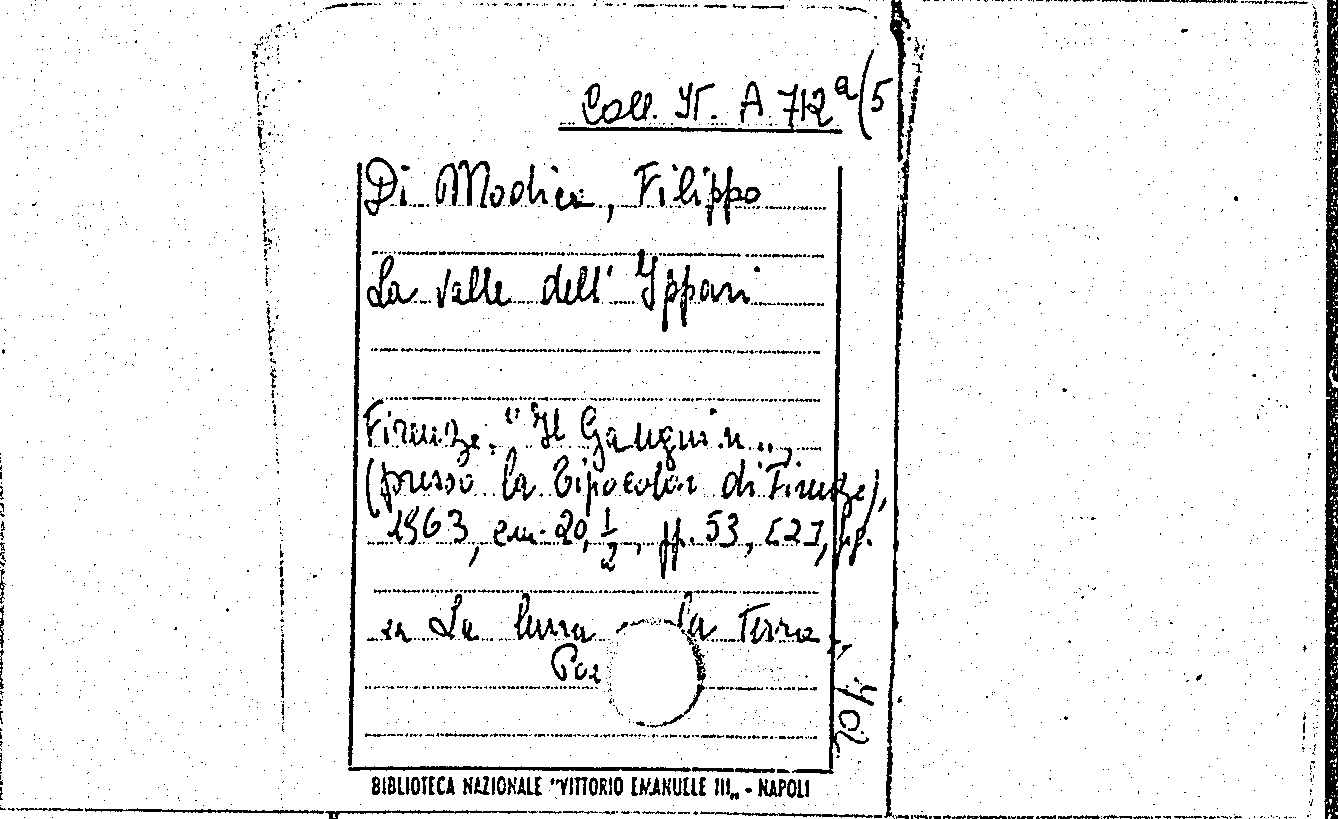 Coll. It. A 712a(5
Di Modica, Filippo
La valle dell' Ippari
Firenze. "Il Gauguin„,
(presso la Tipocolor di Firenze),
1963, cm. 20,1/2, pp. 53, [2],
La luna la Terra„
Poe
BIBLIOTECA NAZIONALE "VITTORIO EMANUELE III„ - NAPOLI